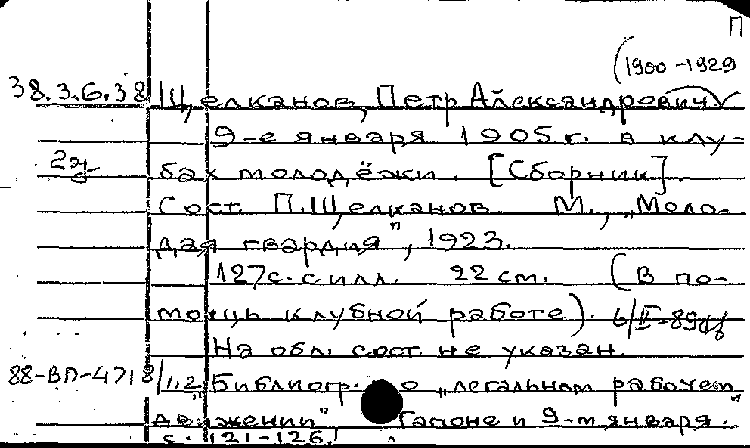 П
(1900-1929
38.3.6.38 Щелканов, Петр Александрович
9-е января 1905 г. в клу-
2э
бах молодёжи. [Сборник]
Сост. П.Щелканов М., „Моло-
дая гвардия", 1923.
127с. с илл. 22 см. (В по-
мощь клубной работе). 6/II-89
На обл. сост. не указан.
88-ВП-4718/1,2 Библиогр. о „легальном рабочем
движении" Гапоне и 9-м января.
с. 121-126.